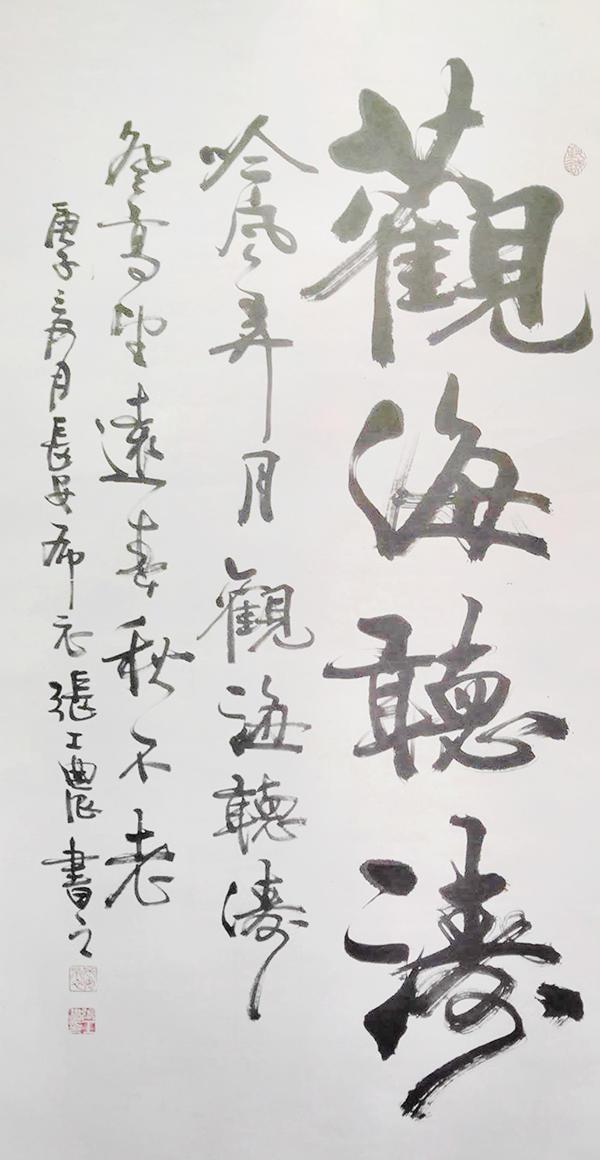 觀海聽濤
吟風弄月觀海聽濤
登高望遠春秋不老
庚子夏月長安布衣張工農書之